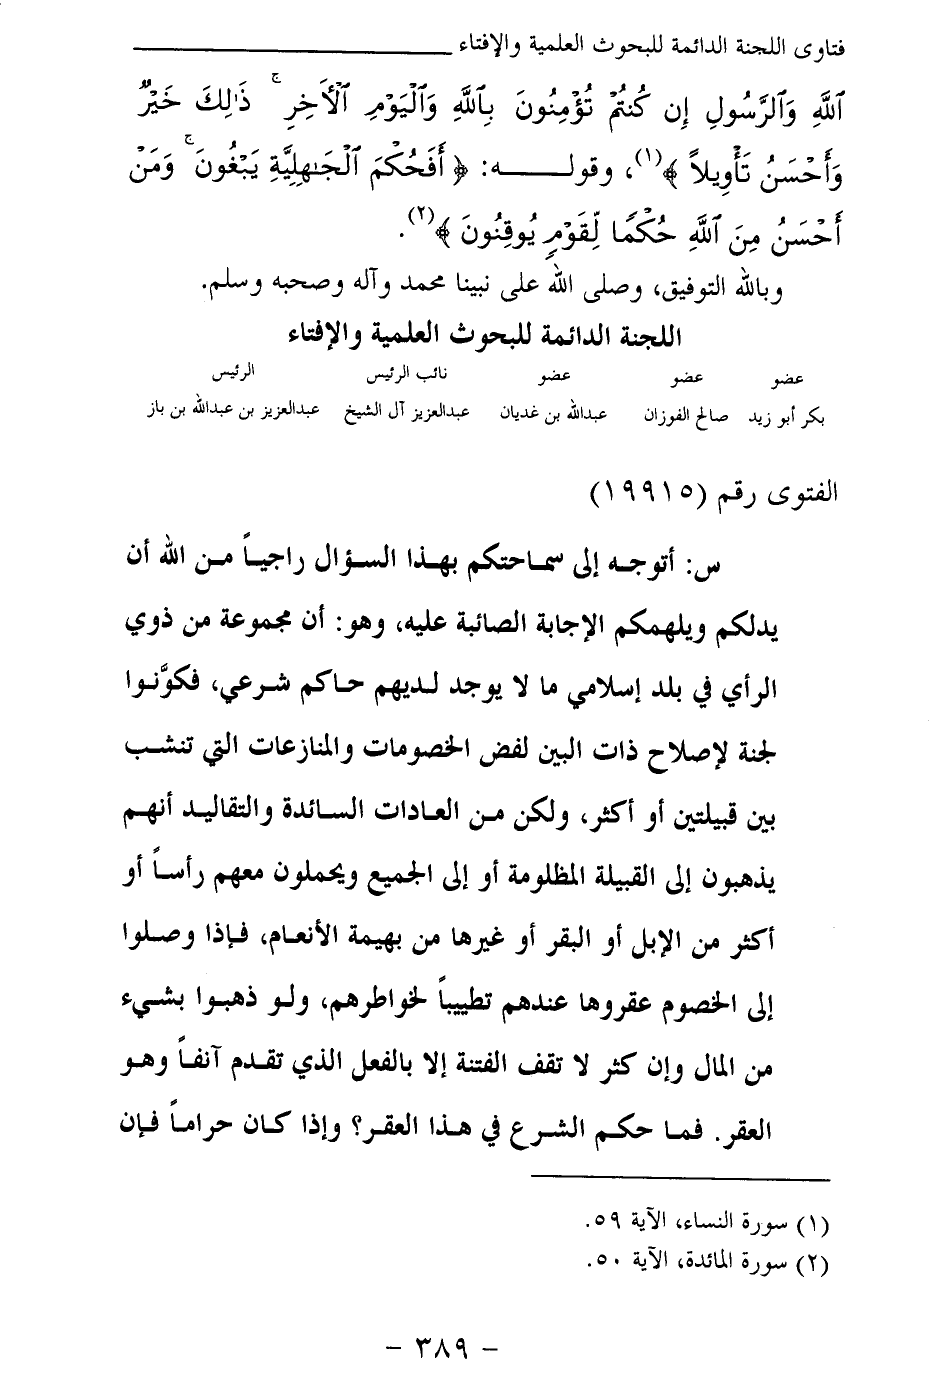 فتاوى اللجنة الدائمة للبحوث العلمية والإفتاء
ٱللَّهِ وَٱلرَّسُولِ إِن كُنتُمْ تُؤْمِنُونَ بِٱللَّهِ وَٱلْيَوْمِ ٱلْأَخِرِ ۚ ذَٰلِكَ خَيْرٌ
وَأَحْسَنُ تَأْوِيلاً ﴾(١)، وقولـــــه: ﴿ أَفَحُكْمَ ٱلْجَـٰهِلِيَّةِ يَبْغُونَ ۚ وَمَنْ
أَحْسَنُ مِنَ ٱللَّهِ حُكْمًا لِّقَوْمٍ يُوقِنُونَ ﴾(٢).
وبالله التوفيق، وصلى الله على نبينا محمد وآله وصحبه وسلم.
اللجنة الدائمة للبحوث العلمية والإفتاء
عضو عضو عضو نائب الرئيس الرئيس
بكر أبو زيد صالح الفوزان عبدالله بن غديان عبدالعزيز آل الشيخ عبدالعزيز بن عبدالله بن باز
الفتوى رقم (١٩٩١٥)
س: أتوجـه إلى سمـاحتكم بهـذا السـؤال راجيـاً مـن الله أن
يدلكم ويلهمكم الإجابة الصائبة عليه، وهو: أن مجموعة من ذوي
الرأي في بلد إسلامي ما لا يوجد لديهم حـاكم شـرعي، فكوَّنـوا
لجنة لإصلاح ذات البين لفض الخصومات والمنازعات التي تنشـب
بين قبيلتين أو أكثر، ولكن مـن العـادات السـائدة والتقاليـد أنهـم
يذهبون إلى القبيلة المظلومة أو إلى الجميع ويحملون معهم رأسـاً أو
أكثر من الإبل أو البقر أو غيرها من بهيمة الأنعام، فـإذا وصـلوا
إلى الخصوم عقروها عندهم تطييباً لخواطرهم، ولـو ذهبـوا بشـيء
من المال وإن كثر لا تقف الفتنة إلا بالفعل الذي تقـدم آنفـاً وهـو
العقر. فمـا حكـم الشـرع في هـذا العقـر؟ وإذا كـان حرامـاً فـإن
(١) سورة النساء، الآية ٥٩.
(٢) سورة المائدة، الآية ٥٠.
- ٣٨٩ -